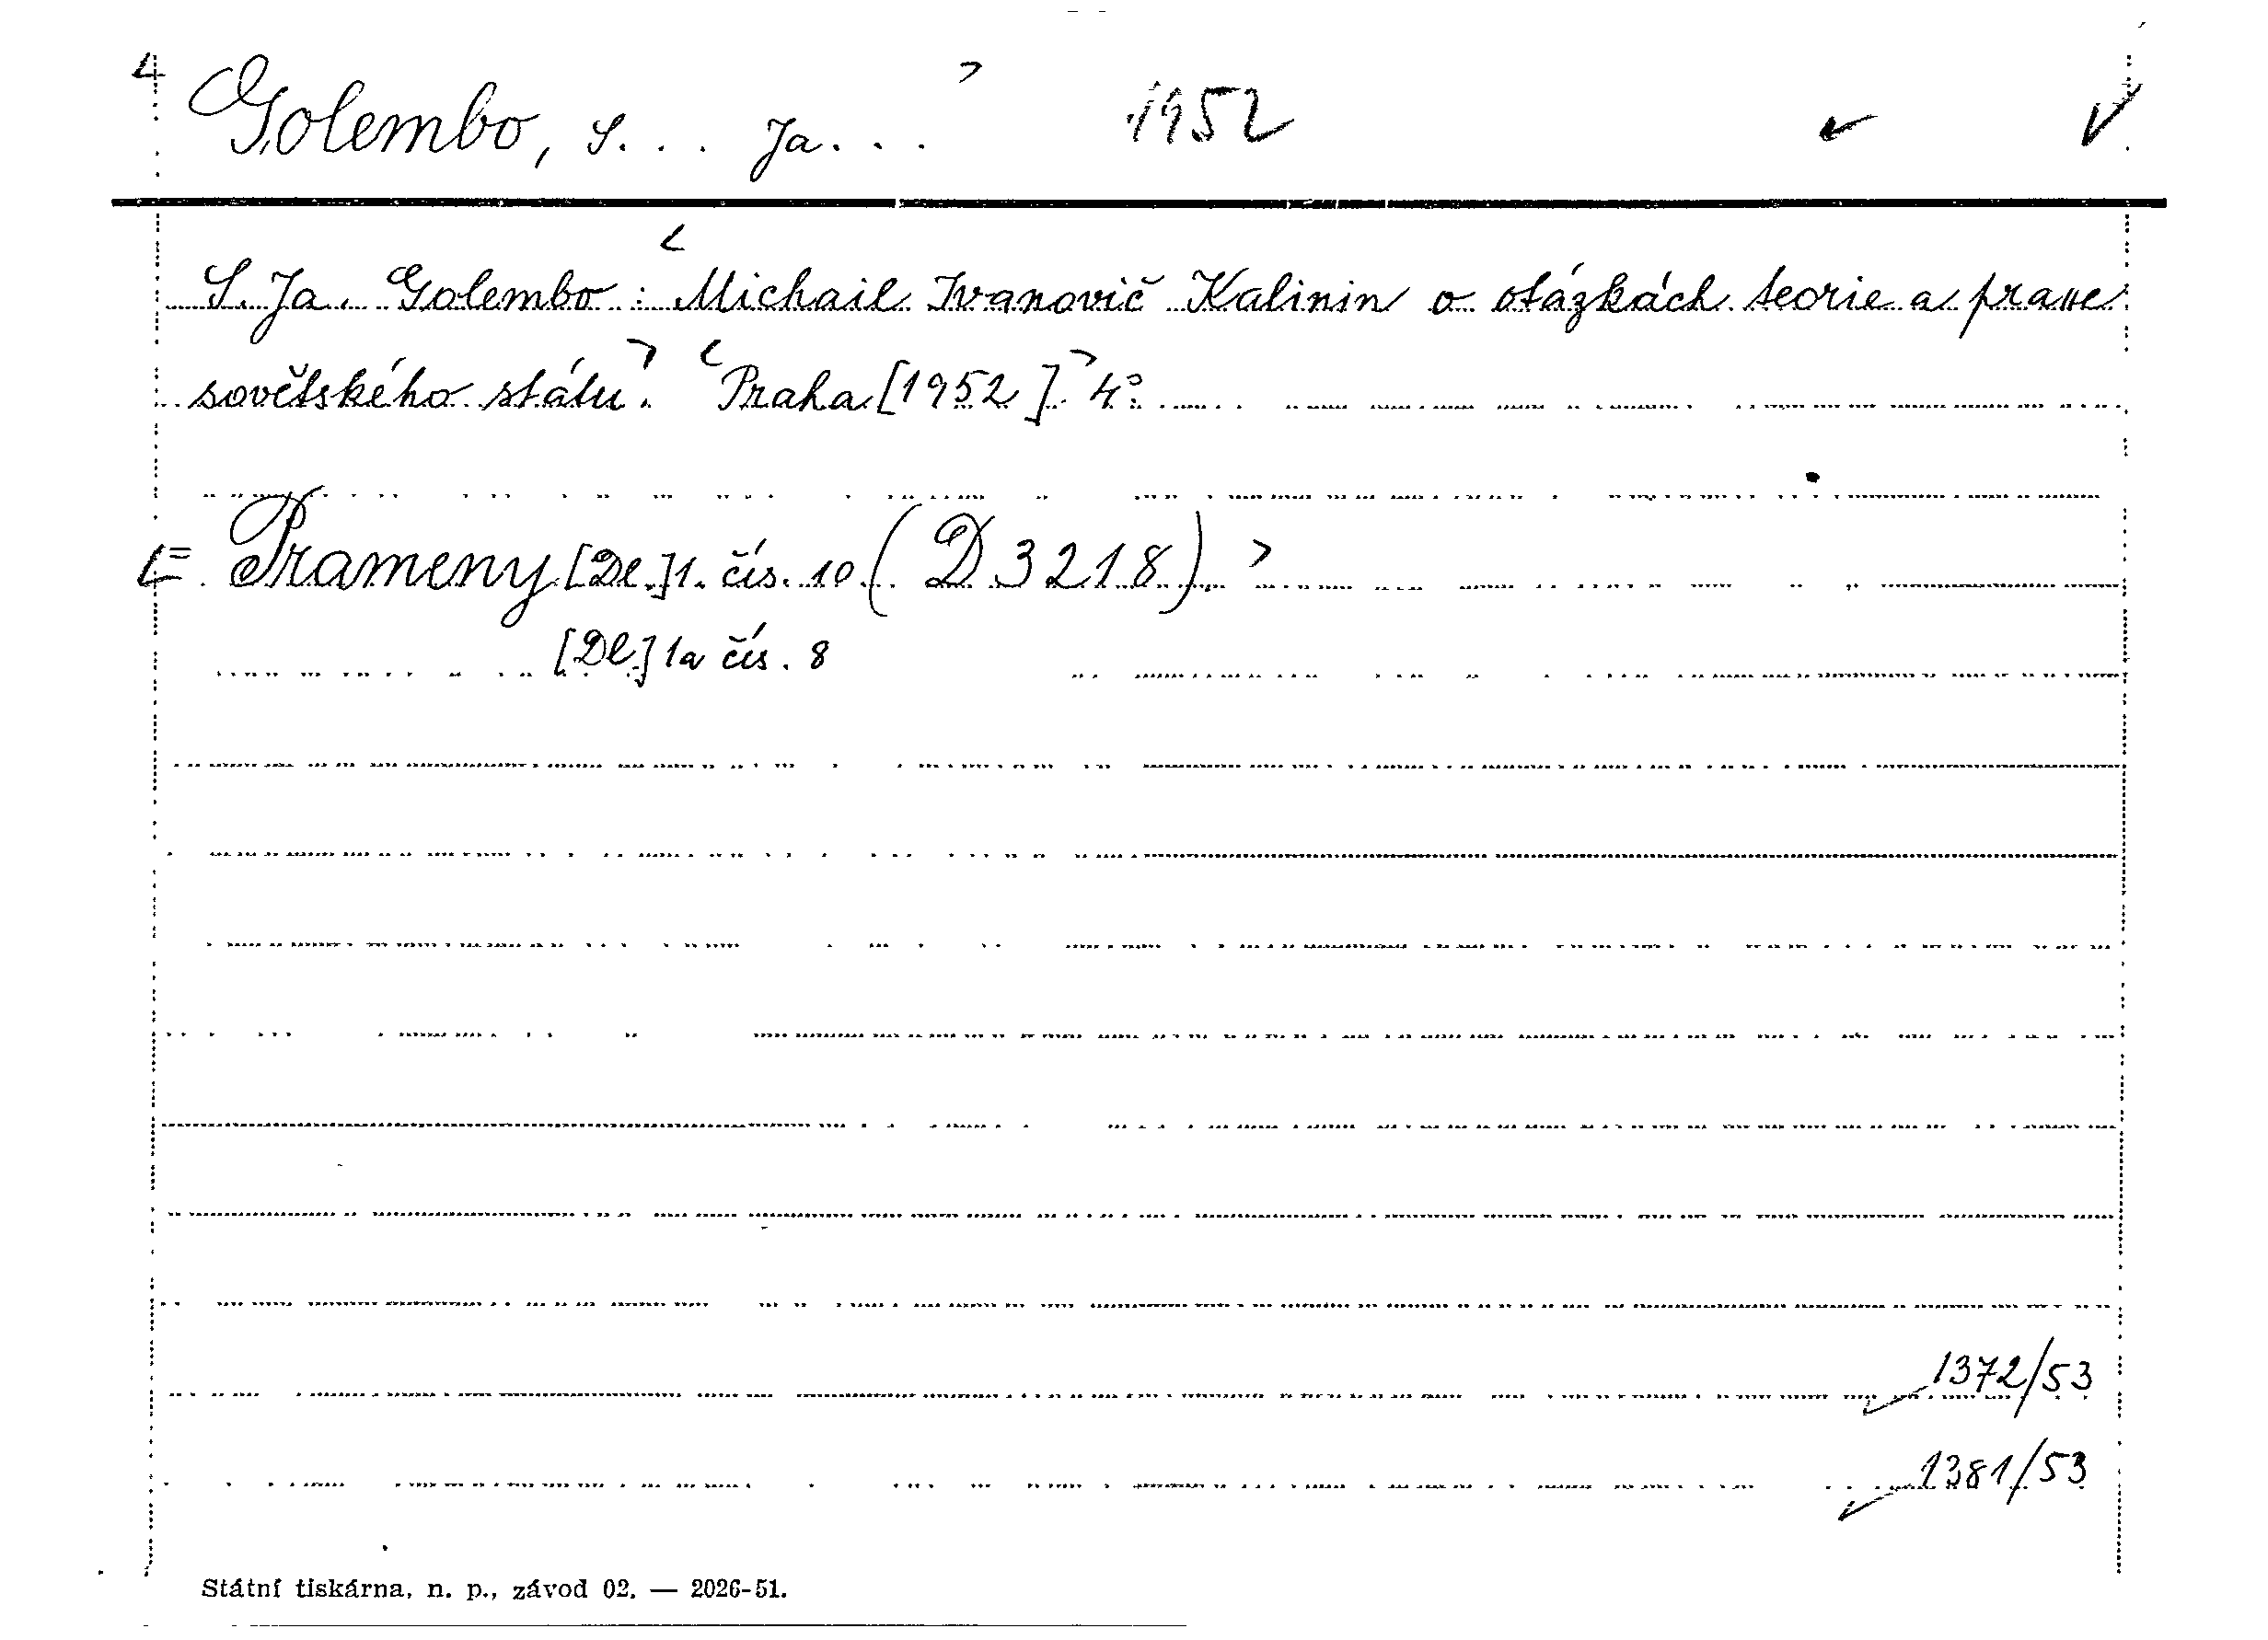 Golembo, S... Ja... 1952
S. Ja. Golembo: Michail Ivanovič Kalinin o otázkách teorie a praxe
sovětského státu. Praha [1952]. 4°.
= Prameny [Dl.] 1. čís. 10 (D 3218).
[Dl.] 1a čís. 8
1372/53
1381/53
Státní tiskárna, n. p., závod 02. — 2026-51.